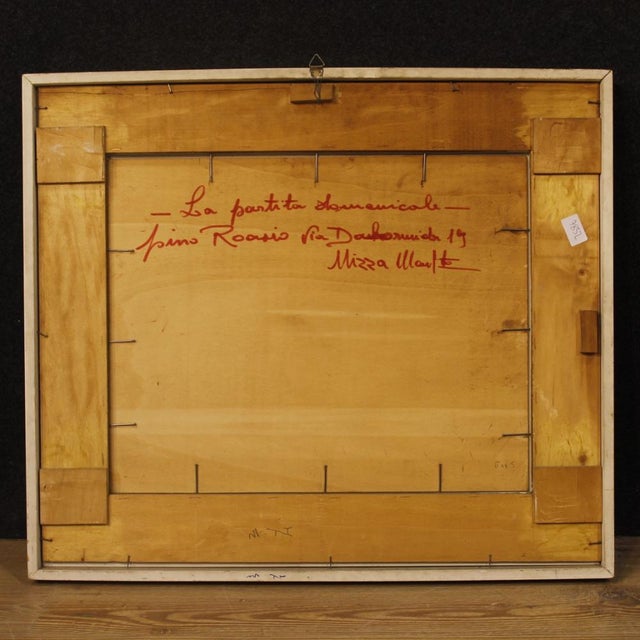 — La partita domenicale —
pino Roasio via Dabormida 19
Nizza Monf.to